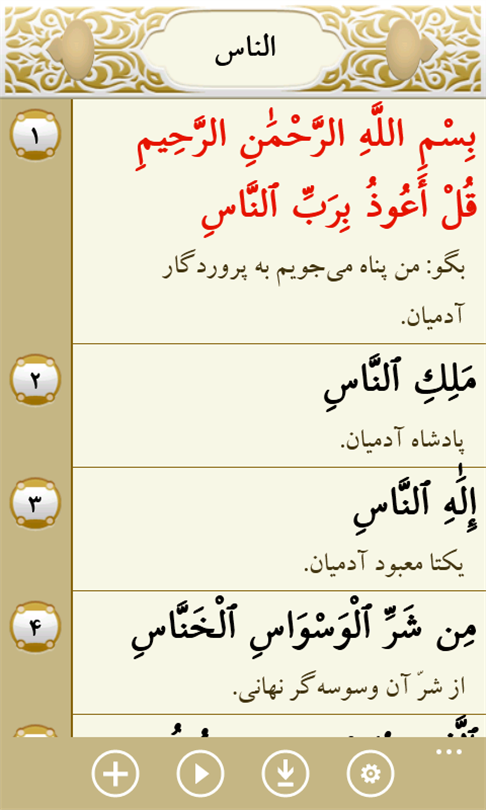 الناس
۱
بِسْمِ اللَّهِ الرَّحْمَٰنِ الرَّحِيمِ
قُلْ أَعُوذُ بِرَبِّ ٱلنَّاسِ
بگو: من پناه می‌جویم به پروردگار
آدمیان.
۲
مَلِكِ ٱلنَّاسِ
پادشاه آدمیان.
۳
إِلَٰهِ ٱلنَّاسِ
یکتا معبود آدمیان.
۴
مِن شَرِّ ٱلْوَسْوَاسِ ٱلْخَنَّاسِ
از شرّ آن وسوسه‌گر نهانی.